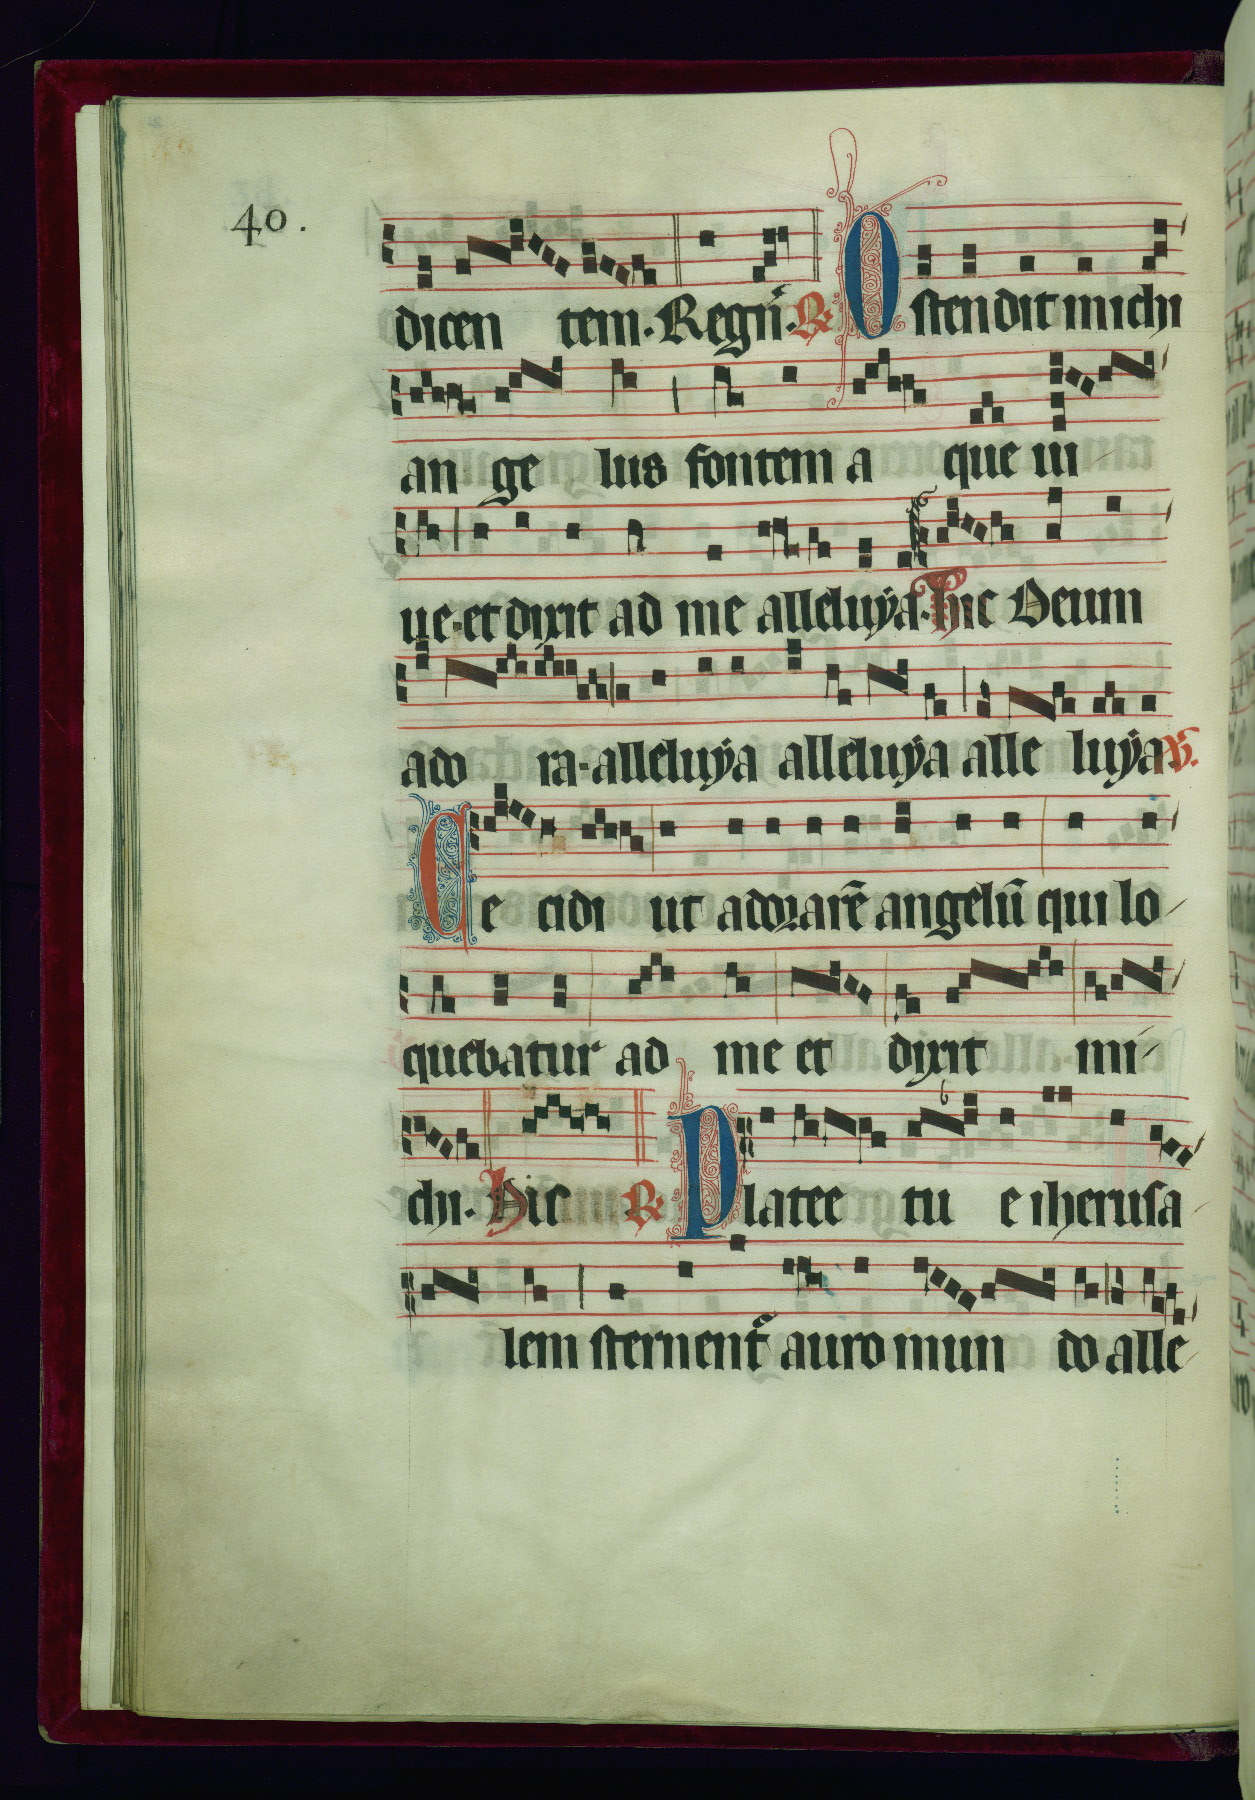 40.
dicen tem. Regn̄. ℟ Ostendit michi
an ge lus fontem a que ui
ue. et dixit ad me alleluÿa. Hic Deum
ado ra. alleluÿa alleluÿa alle luÿa ℣.
Ce cidi ut adorarē angelū qui lo
quebatur ad me et dixit mi
chi. Hic ℟ Platee tu e iherusa
lem sternent᷑ auro mun do alle